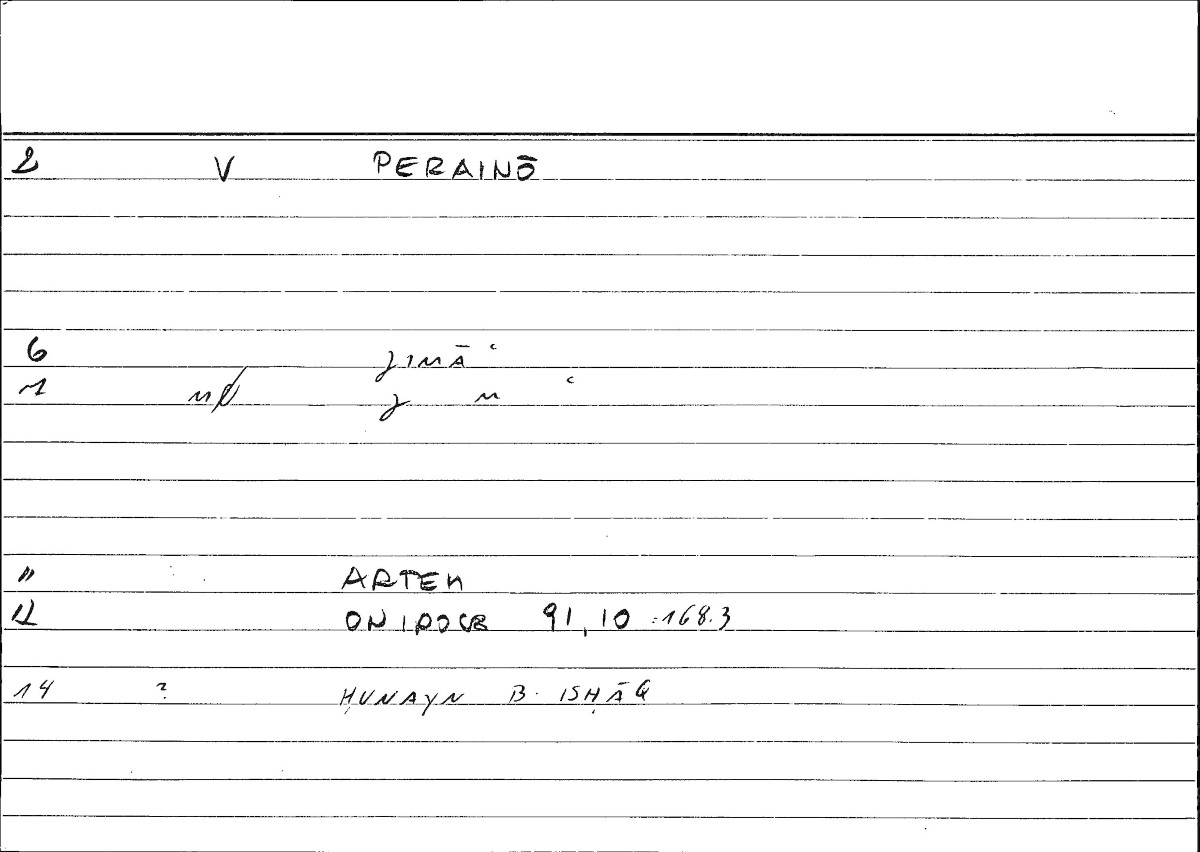 2 V PERAINŌ
6 JIMĀʿ
" ARTEM
ONIROCR 91,10 :168.3
14 ? ḤUNAYN B. ISḤĀQ